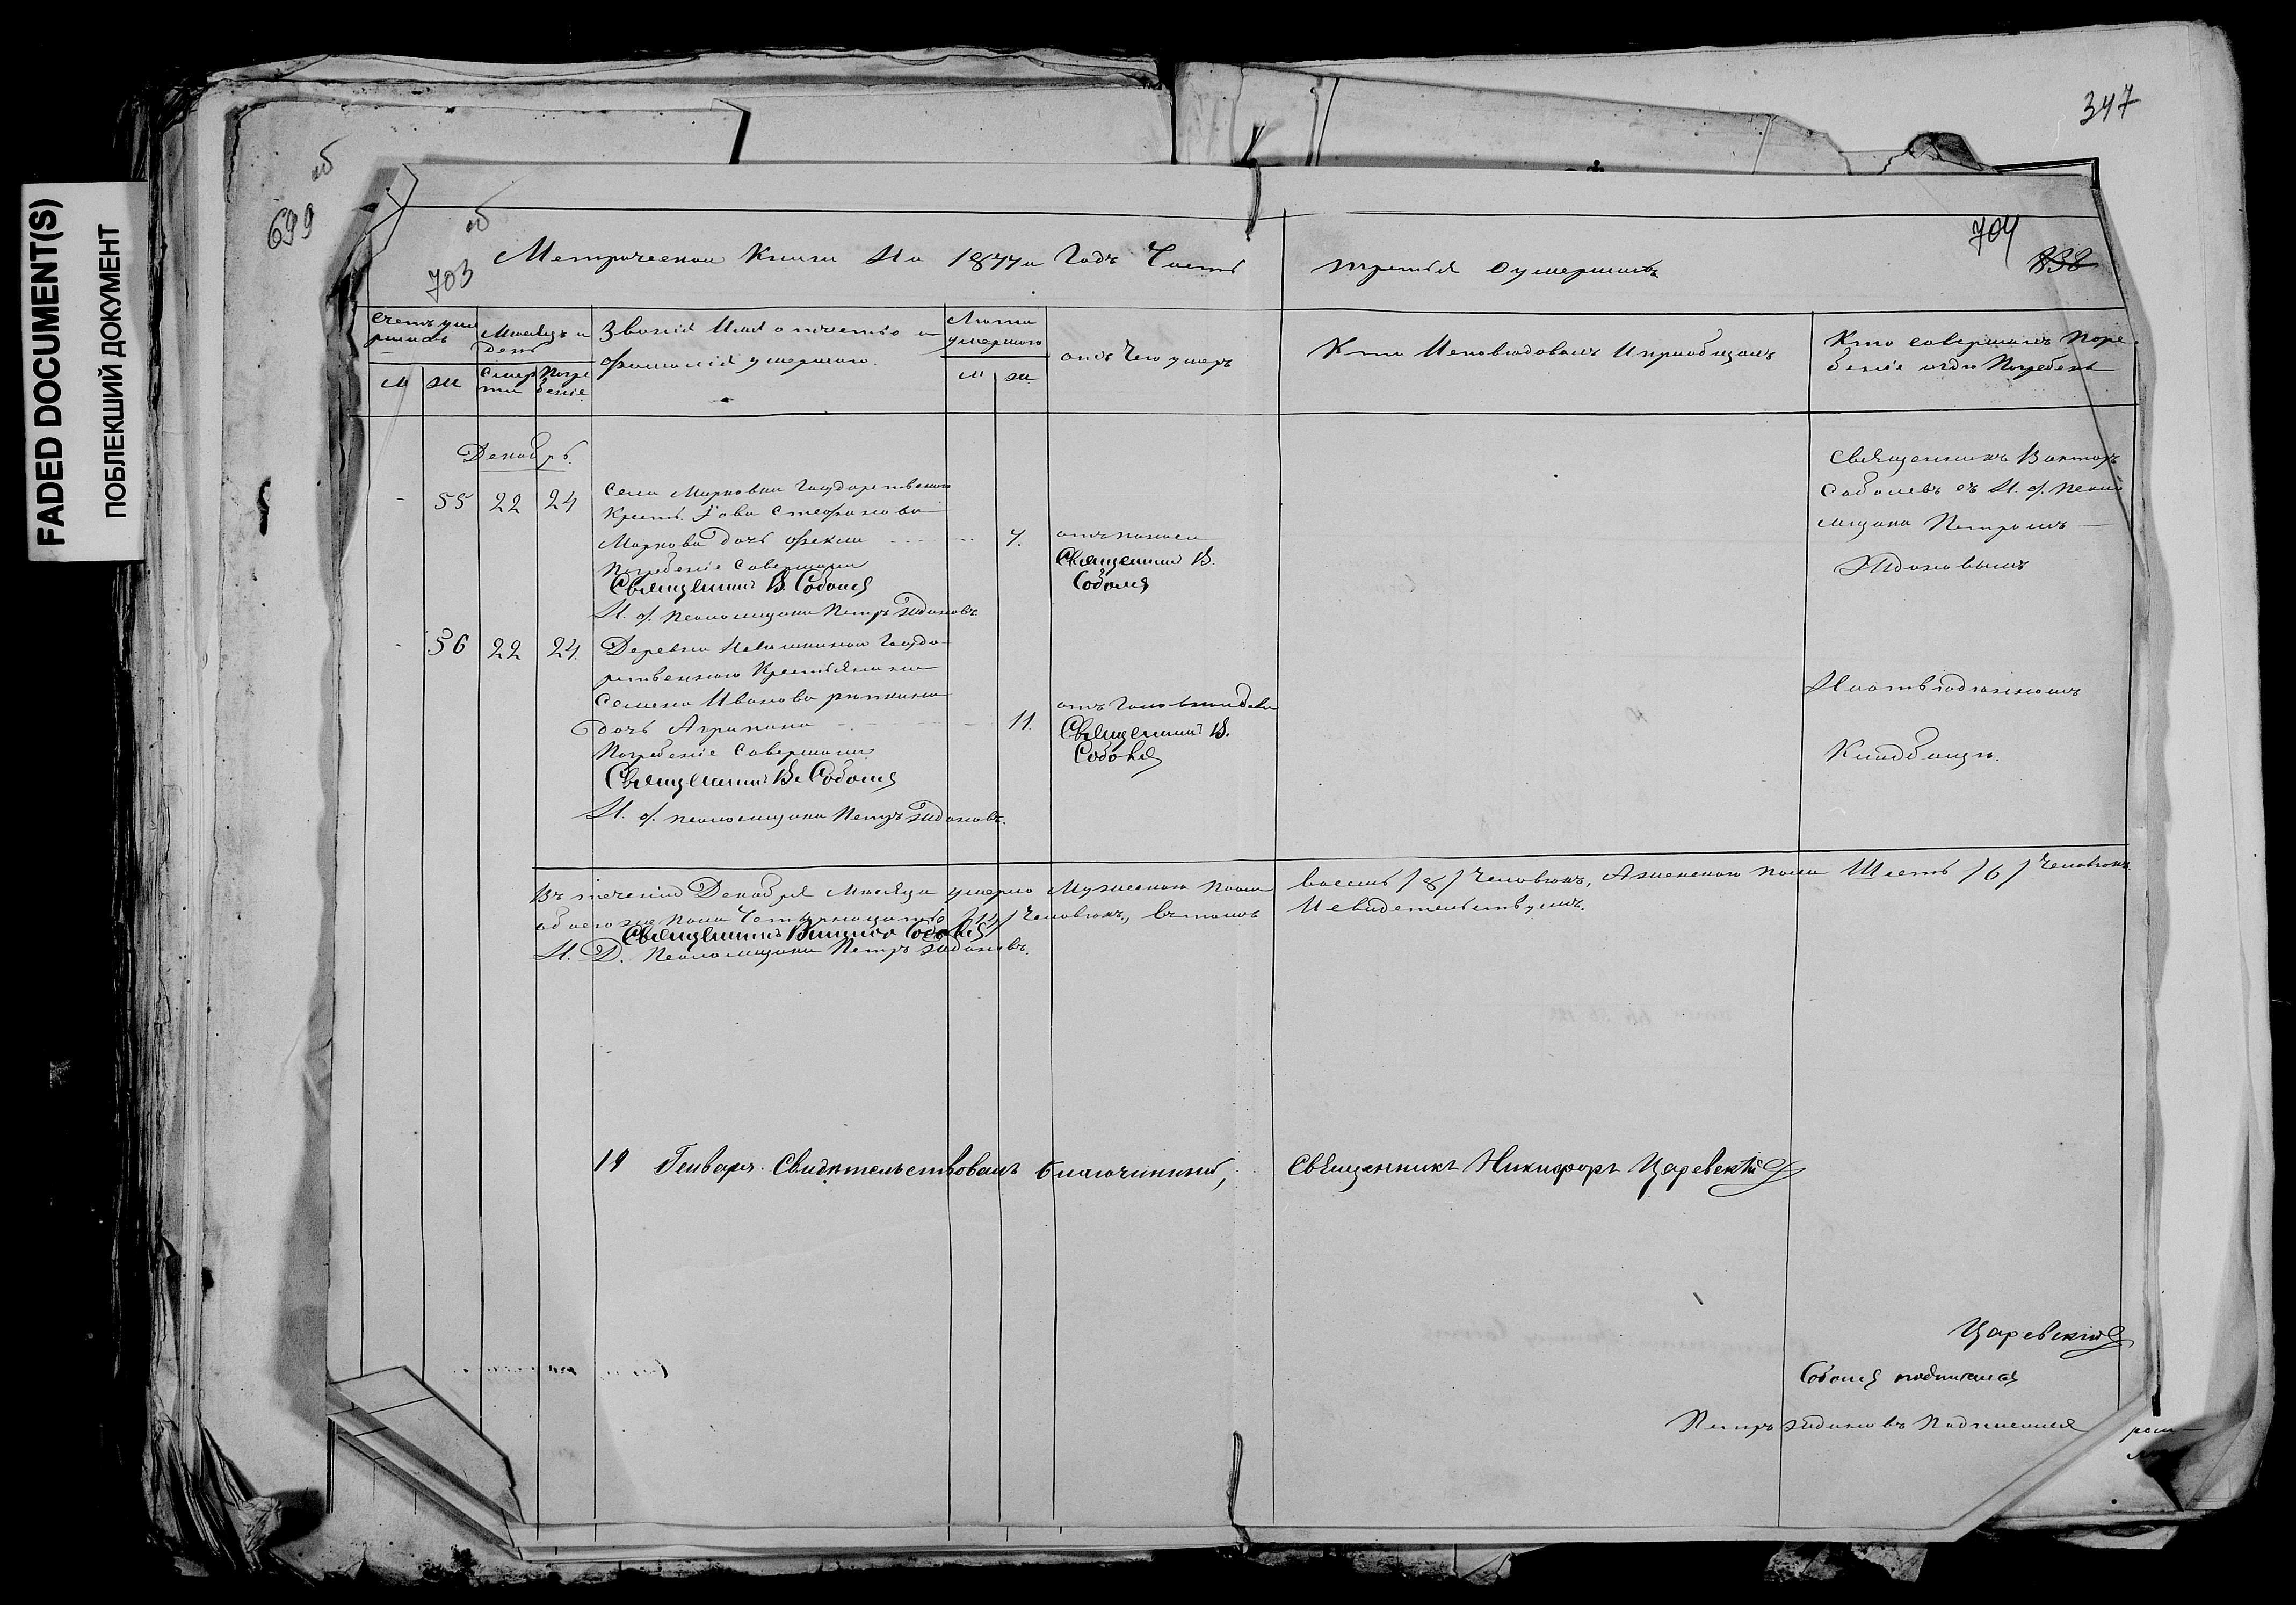 FADED DOCUMENT(S)
ПОБЛЕКШИЙ ДОКУМЕНТ
347
об
699
об
703
704
838
Метрической Книги На 1877й Годъ Часть третья о умершихъ
Счетъ уме
ршихъ
Мѣсяцъ и
день
Званіе Имя отчество и
фамилія умершаго.
Лѣта
умершаго
отъ Чего умеръ
Кто Исповѣдовалъ И пріобщалъ
Кто совершалъ Погре
беніе и гдѣ Погребенъ
м ж
Смер
ти
Погре
беніе
м ж
Декабрь.
- 55 22 24
Села Марковки Государственнаго
Крест. Іова Стефанова
Маркова дочь Фекла 7.
Погребеніе Совершали
Священникъ В. Соболев
И. д. псаломщика Петръ Ждановъ.
отъ поноса
Священникъ В.
Соболев
Священникъ Викторъ
Соболевъ съ И. д. Псало
мщика Петромъ
Ждановымъ
- 56 22 24.
Деревни Госуда
рственнаго Крестьянина
Семена Иванова
дочь Агрипина 11.
Погребеніе Совершали
Священникъ В. Соболев
И. д. псаломщика Петръ Ждановъ.
отъ
Священникъ В.
Соболев
На отведенномъ
Кладбищѣ.
Въ теченіи Декабря Мѣсяца умерло Мужескаго Пола восемь /8/ Человѣкъ, А женскаго пола Шесть /6/ Человѣкъ
обоего же пола Четырнадцать /14/ Человѣкъ, въ томъ И свидетельствуемъ.
Священникъ Викторъ Соболев
И. Д. Псаломщика Петръ Ждановъ.
19 Генваря Свидѣтельствовалъ благочинный, Священникъ Никифоръ Царевскій
Царевскій
Соболев подписалъ
Петръ Ждановъ Подписался